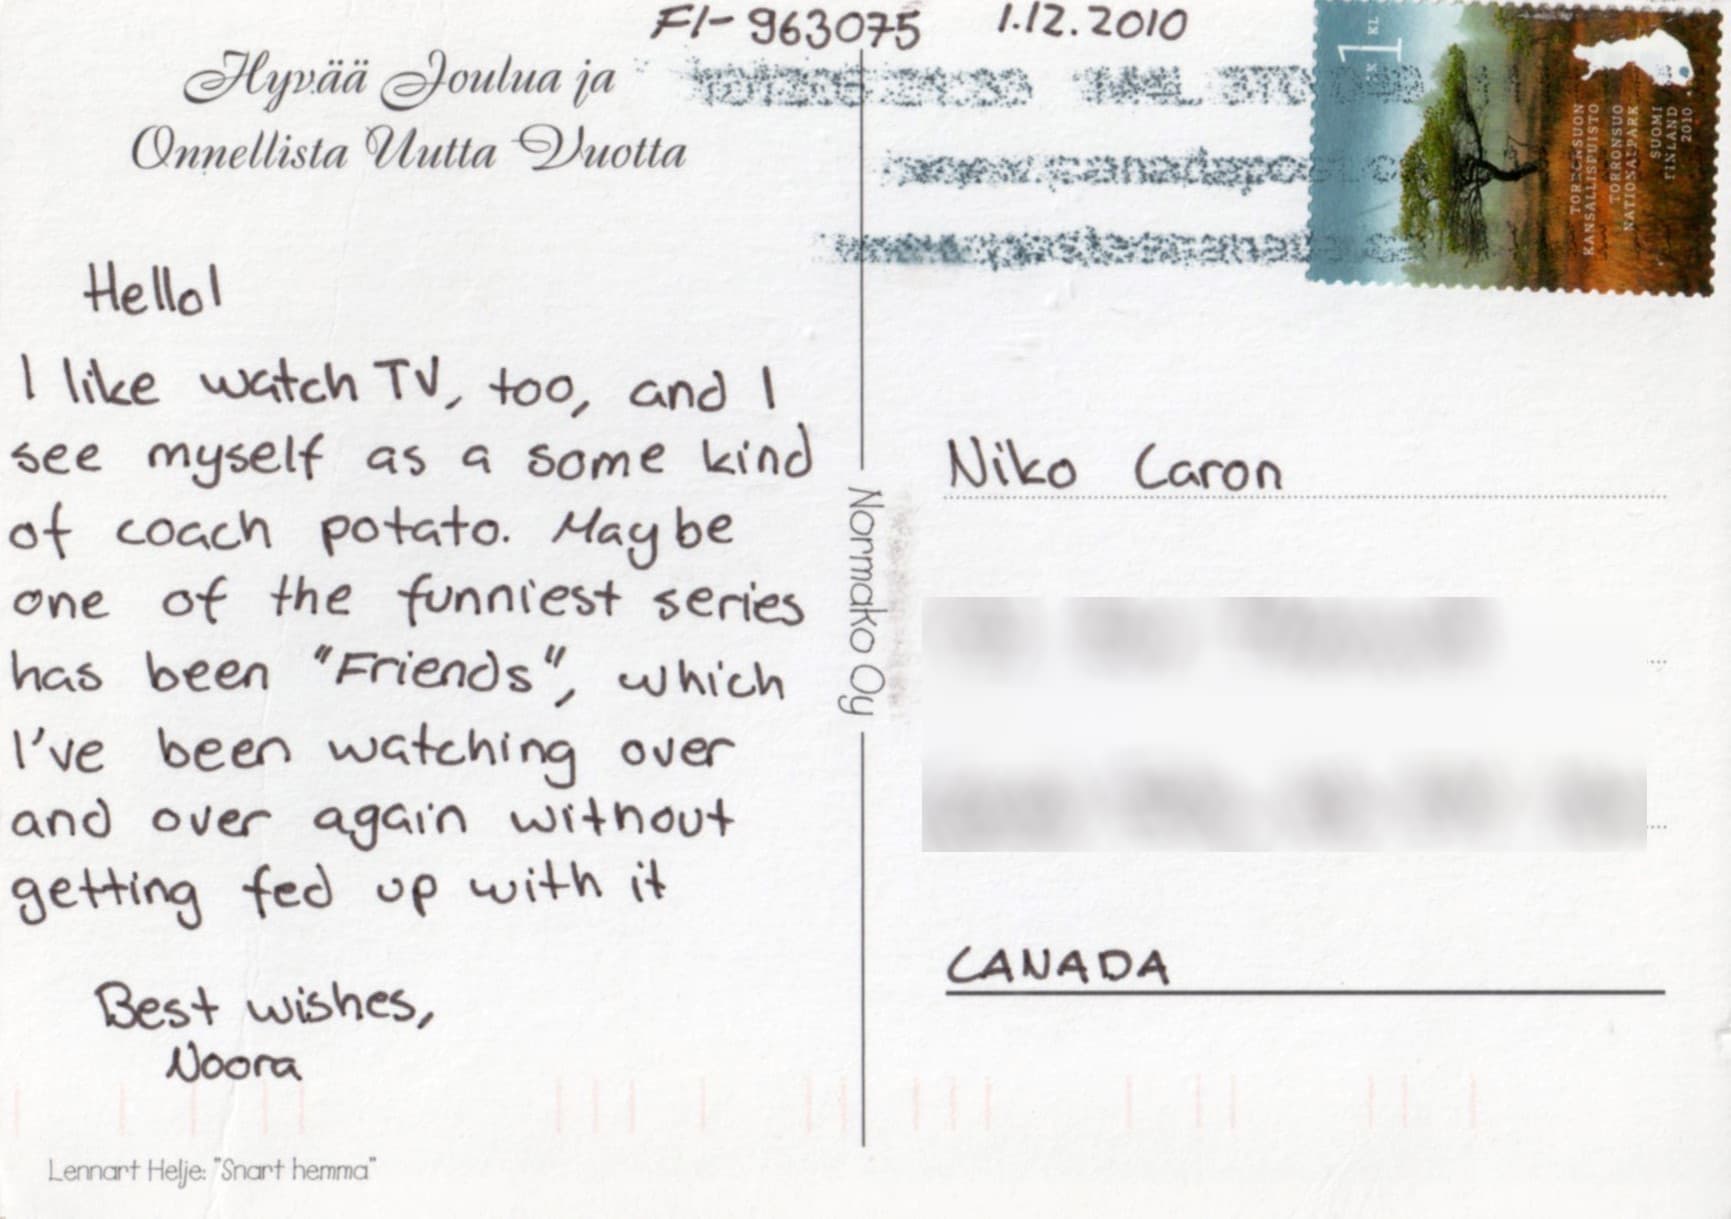 FI-963075 1.12.2010
Hyvää Joulua ja
Onnellista Uutta Vuotta
1 KL
LK
TORRONSUON
KANSALLISPUISTO
TORRONSUO
NATIONALPARK
SUOMI
FINLAND
2010
Hello!
I like watch TV, too, and I
see myself as a some kind
of coach potato. Maybe
one of the funniest series
has been "Friends", which
I've been watching over
and over again without
getting fed up with it
Best wishes,
Noora
Lennart Helje: "Snart hemma"
Normako Oy
Niko Caron
CANADA